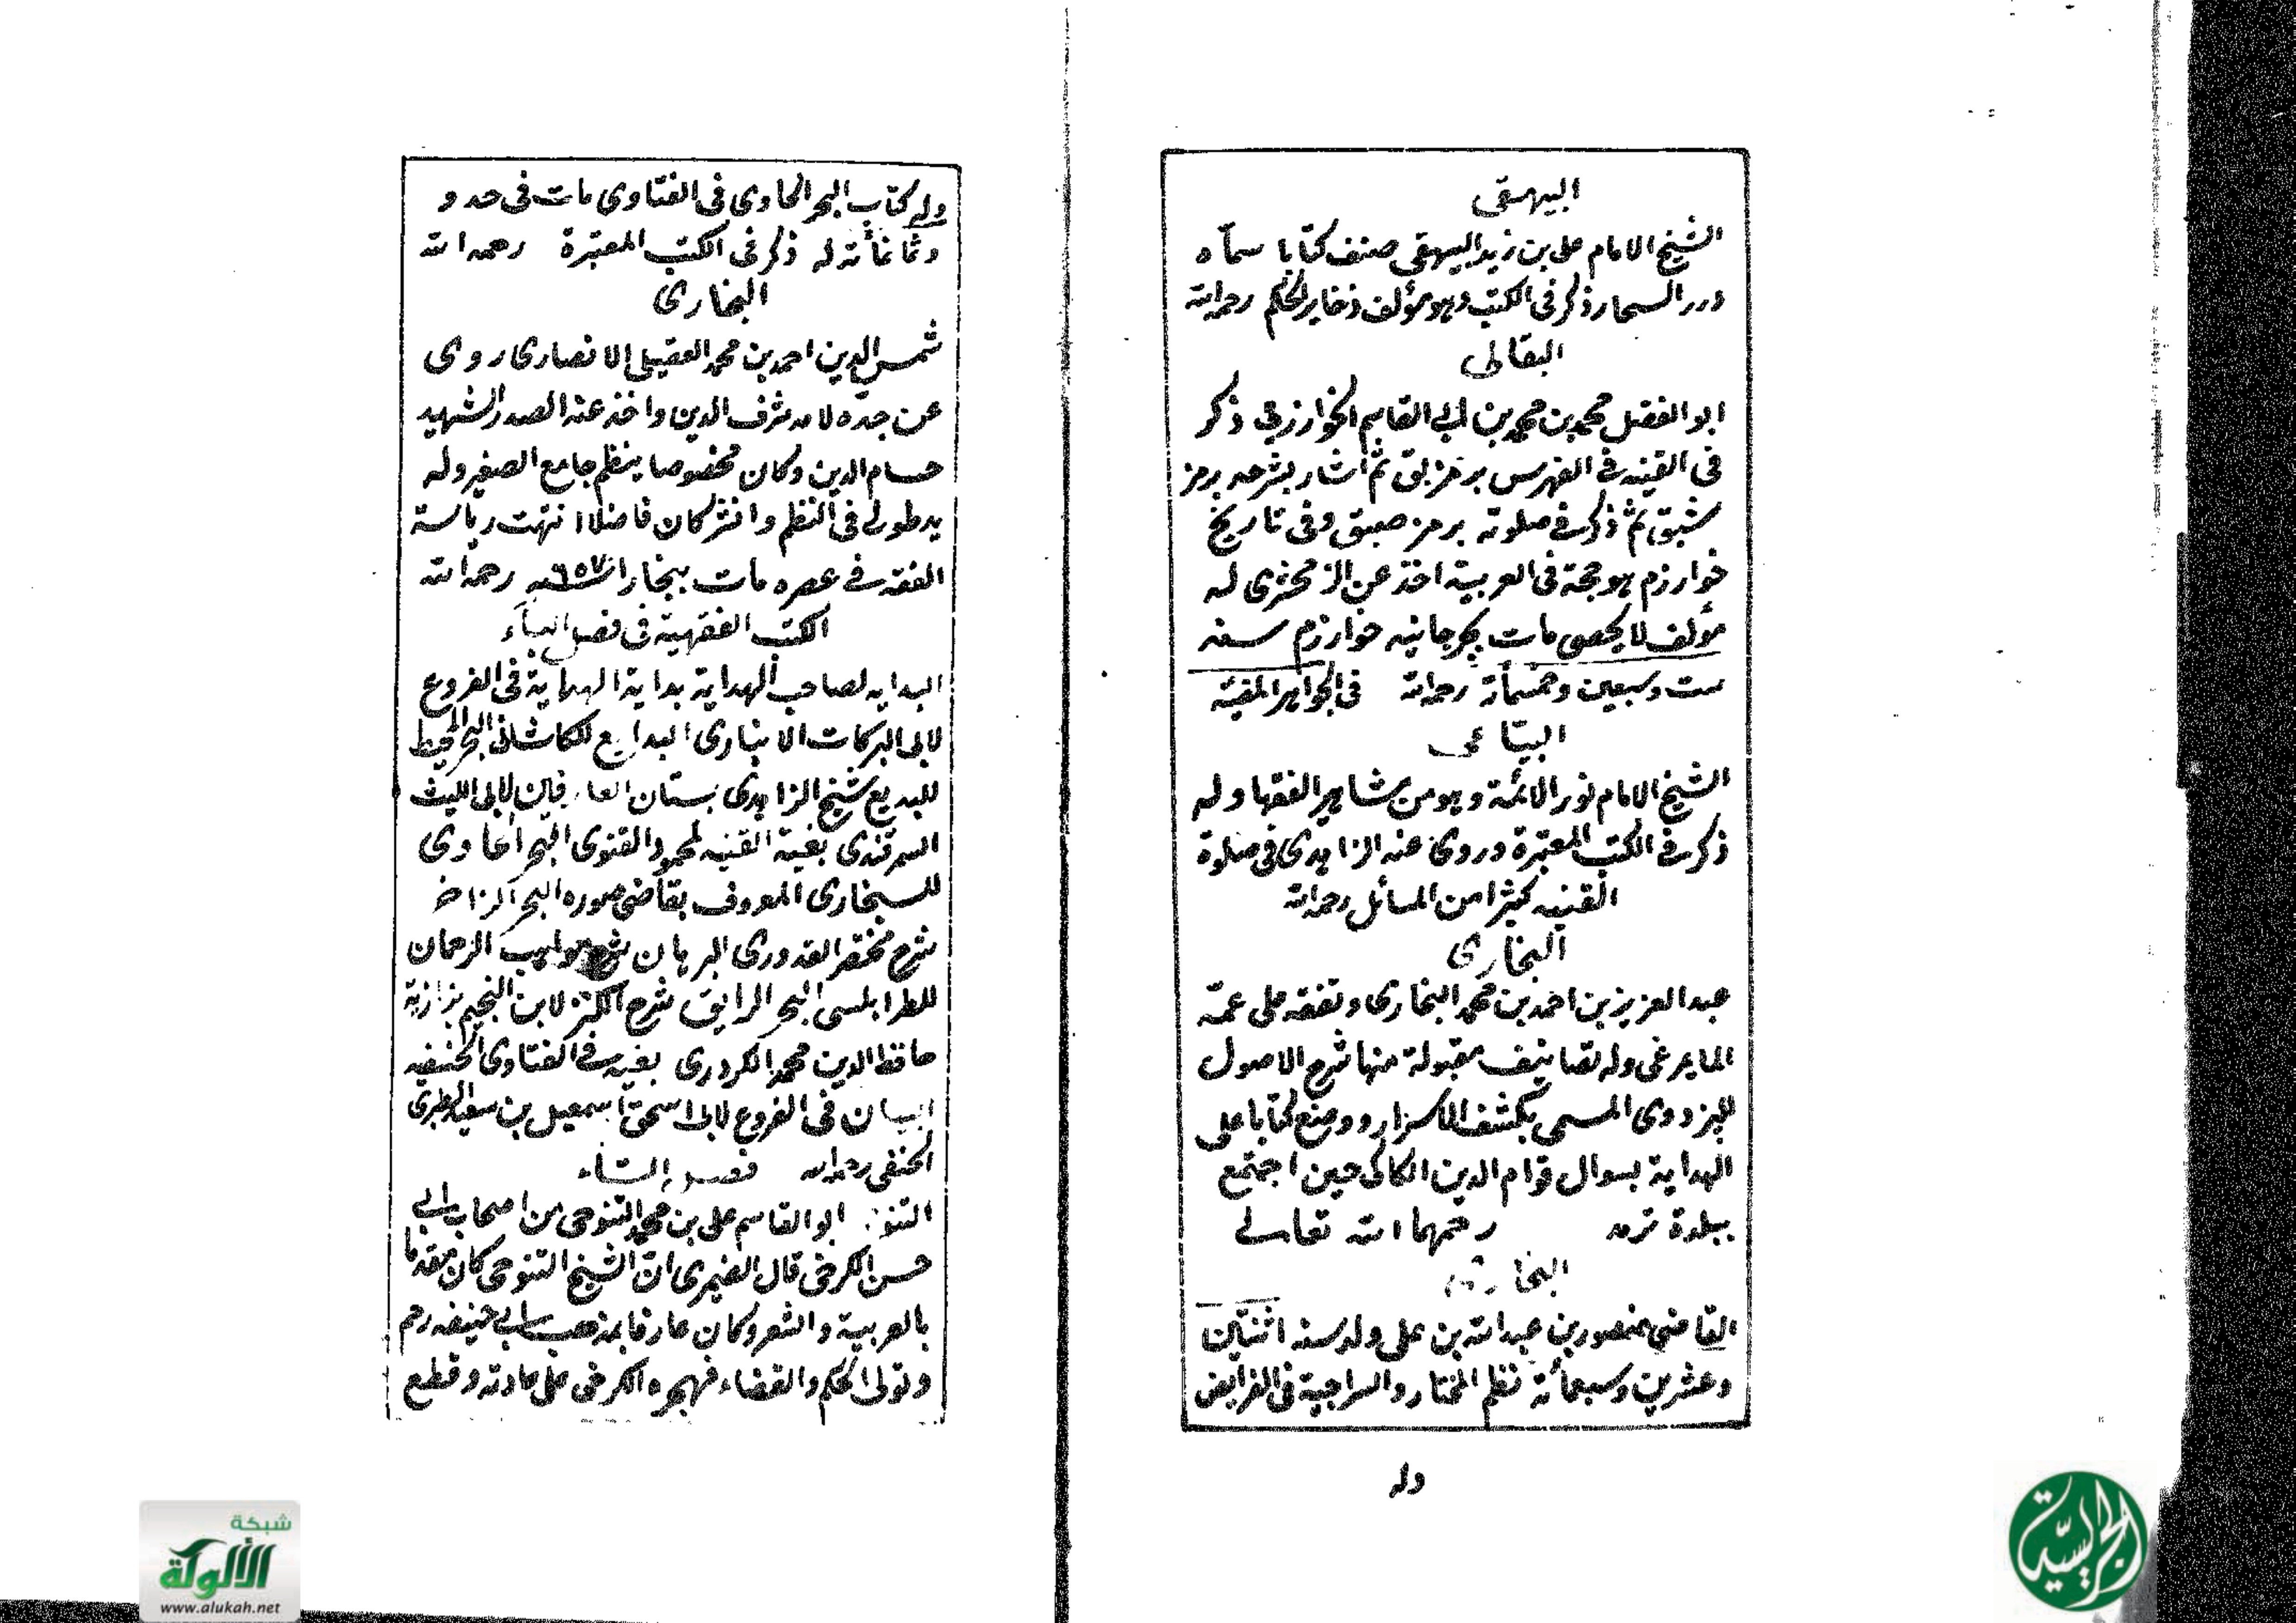 البيهقى
الشيخ الامام على بن زيد البيهقى صنف كتابا سماه
درر السحار ذكر فى الكتب وهو مؤلف ذخاير الحكم رحمه الله
البقالى
ابو الفضل محمد بن محمد بن ابى القاسم الخوارزمى ذكر
فى القنيه فى الفهرس برمز بق ثم اشار بشرحه برمز
شبق ثم ذكر فى صلوته برمز صبق وفى تاريخ
خوارزم هو حجة فى العربية اخذ عن الزمخشرى له
مؤلف لا يحصى مات بجرجانيه خوارزم سنه
ست وسبعين وخمسمأة رحمه الله فى الجواهر المضية
البياعى
الشيخ الامام نور الائمة وهو من مشاهير الفقها وله
ذكر فى الكتب المعتبرة وروى عنه الزاهدى فى صلوة
القنيه كثيرا من المسائل رحمه الله
البخارى
عبد العزيز بن احمد بن محمد البخارى وتفقه على عمه
المايمرغى وله تصانيف مقبولة منها شرح الاصول
للبزدوى المسمى بكشف الاسرار ووضع كتابا على
الهداية بسوال قوام الدين الكاكى حين اجتمع
ببلدة ترمد رحمهما الله تعالى
البخارى
القاضى منصور بن عبد الله بن على ولد سنه اثنتين
وعشرين وسبعمأة نظم المختار والسراجية فى الفرايض
وله
وله كتاب البحر الحاوى فى الفتاوى مات فى حدو
وثمانمأئة له ذكر فى الكتب المعتبرة رحمه الله
البخارى
شمس الدين احمد بن محمد العقيلى الانصارى روى
عن جده لامه شرف الدين واخذ عنه الصدر الشهيد
حسام الدين وكان مخصوصا بنظم جامع الصغير وله
يد طولى فى النظم والنثر كان فاضلا انتهت رياسة
الفقه فى عصره مات ببخارا سنه ٦٥٧ رحمه الله
الكتب الفقهية فى فصل الباء
البدايه لصاحب الهداية بداية النهاية فى الفروع
لابى البركات الانبارى البدايع للكاشانى البحر المحيط
للبديع شيخ الزاهدى بستان العارفين لابى الليث
السمرقندى بغية القنيه لمحمود القنوى البحر الحاوى
للبخارى المعروف بقاضى صوره البحر الزاخر
شرح مختصر القدورى البرهان شرح مواهب الرحمان
للطرابلسى البحر الرايق شرح الكنز لابن النجيم بزازية
حافظ الدين محمد الكردرى بغيه فى الفتاوى الحنيفيه
البيان فى الفروع لابى اسحق اسمعيل بن سعيد الطبرى
الحنفى رحمه الله فصل التاء
التنوخى ابو القاسم على بن محمد التنوخى من اصحاب ابى
حسن الكرخى قال الصيمرى ان الشيخ التنوخى كان مقدما
بالعربية والشعر وكان عارفا بمذهب ابى حنيفه رحم
وتولى الحكم والقضاء فهجره الكرخى على عادته وقطع
شبكة
الألوكة
www.alukah.net